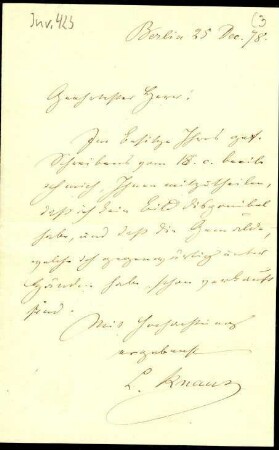 Inv. 425
Berlin 25 Dec. 78.
Geehrtester Herr!
Im Besitze Ihres gef.
Schreibens vom 18. c. beeile
ich mich, Ihnen mitzutheilen,
daß ich kein Bild disponibel
habe, und daß die Gemälde,
welche ich gegenwärtig unter
Händen habe schon verkauft
sind.
Mit Hochachtung
ergebenst
L. Knaus